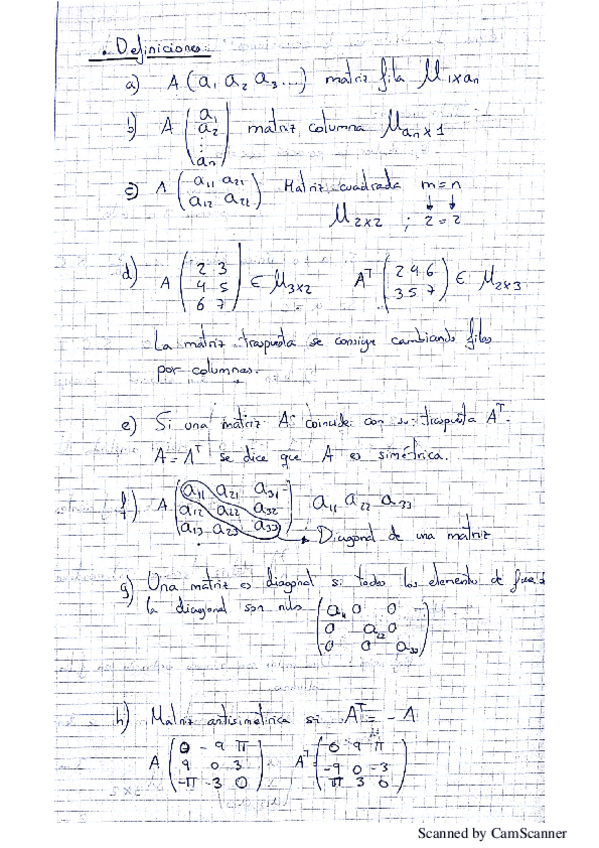 . Definiciones:
a) A (a₁ a₂ a₃ ...) matriz fila M₁ₓₐₙ
b) A (a₁ a₂ ⋮ aₙ) matriz columna Mₐₙₓ₁
c) A (a₁₁ a₂₁ Matriz cuadrada m = n
a₁₂ a₂₂) M₂ₓ₂ ; 2 = 2
d) A (2 3 4 5 6 7) ∈ M₃ₓ₂ Aᵀ (2 4 6 3 5 7) ∈ M₂ₓ₃
La matriz traspuesta se consigue cambiando filas
por columnas.
e) Si una matriz A coincide con su traspuesta Aᵀ.
A = Aᵀ se dice que A es simétrica.
f) A (a₁₁ a₂₁ a₃₁
a₁₂ a₂₂ a₃₂ a₁₁ a₂₂ a₃₃
a₁₃ a₂₃ a₃₃) → Diagonal de una matriz
g) Una matriz es diagonal si todos los elementos de fuera
la diagonal son nulos (a₁₁ 0 0
0 a₂₂ 0
0 0 a₃₃)
h) Matriz antisimétrica si Aᵀ = - A
A (0 -9 π Aᵀ = (0 9 π
9 0 3 -9 0 -3
-π -3 0) π 3 0)
Scanned by CamScanner